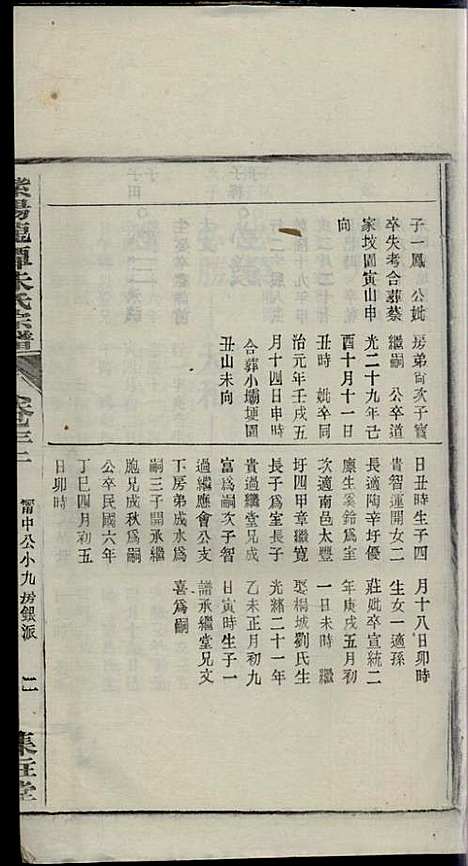 子一鳳　公妣
卒失考合葬蔡
家坟園寅山申
向
房弟甯次子寳
繼嗣　公卒道
光二十九年己
酉十月十一日
丑時　妣卒同
治元年壬戌五
月十四日申時
合葬小壩埂園
丑山未向
日丑時生子四
貴智運開女二
長適陶辛圩優
廪生奚鈴爲室
次適南邑太豐
圩四甲章繼寛
長子爲室長子
貴過繼堂兄成
富爲嗣次子智
過繼應會公支
下房弟成水爲
嗣三子開承繼
胞兄成秋爲嗣
公卒民國六年
丁巳四月初五
日卯時
月十八日卯時
生女一適孫
莊妣卒宣統二
年庚戌五月初
一日未時　繼
娶桐城劉氏生
光緒二十一年
乙未正月初九
日寅時生子一
譜承繼堂兄文
喜爲嗣
紫陽龍潭朱氏宗譜
卷三二
甯中公小九房銀派
二
集莊堂